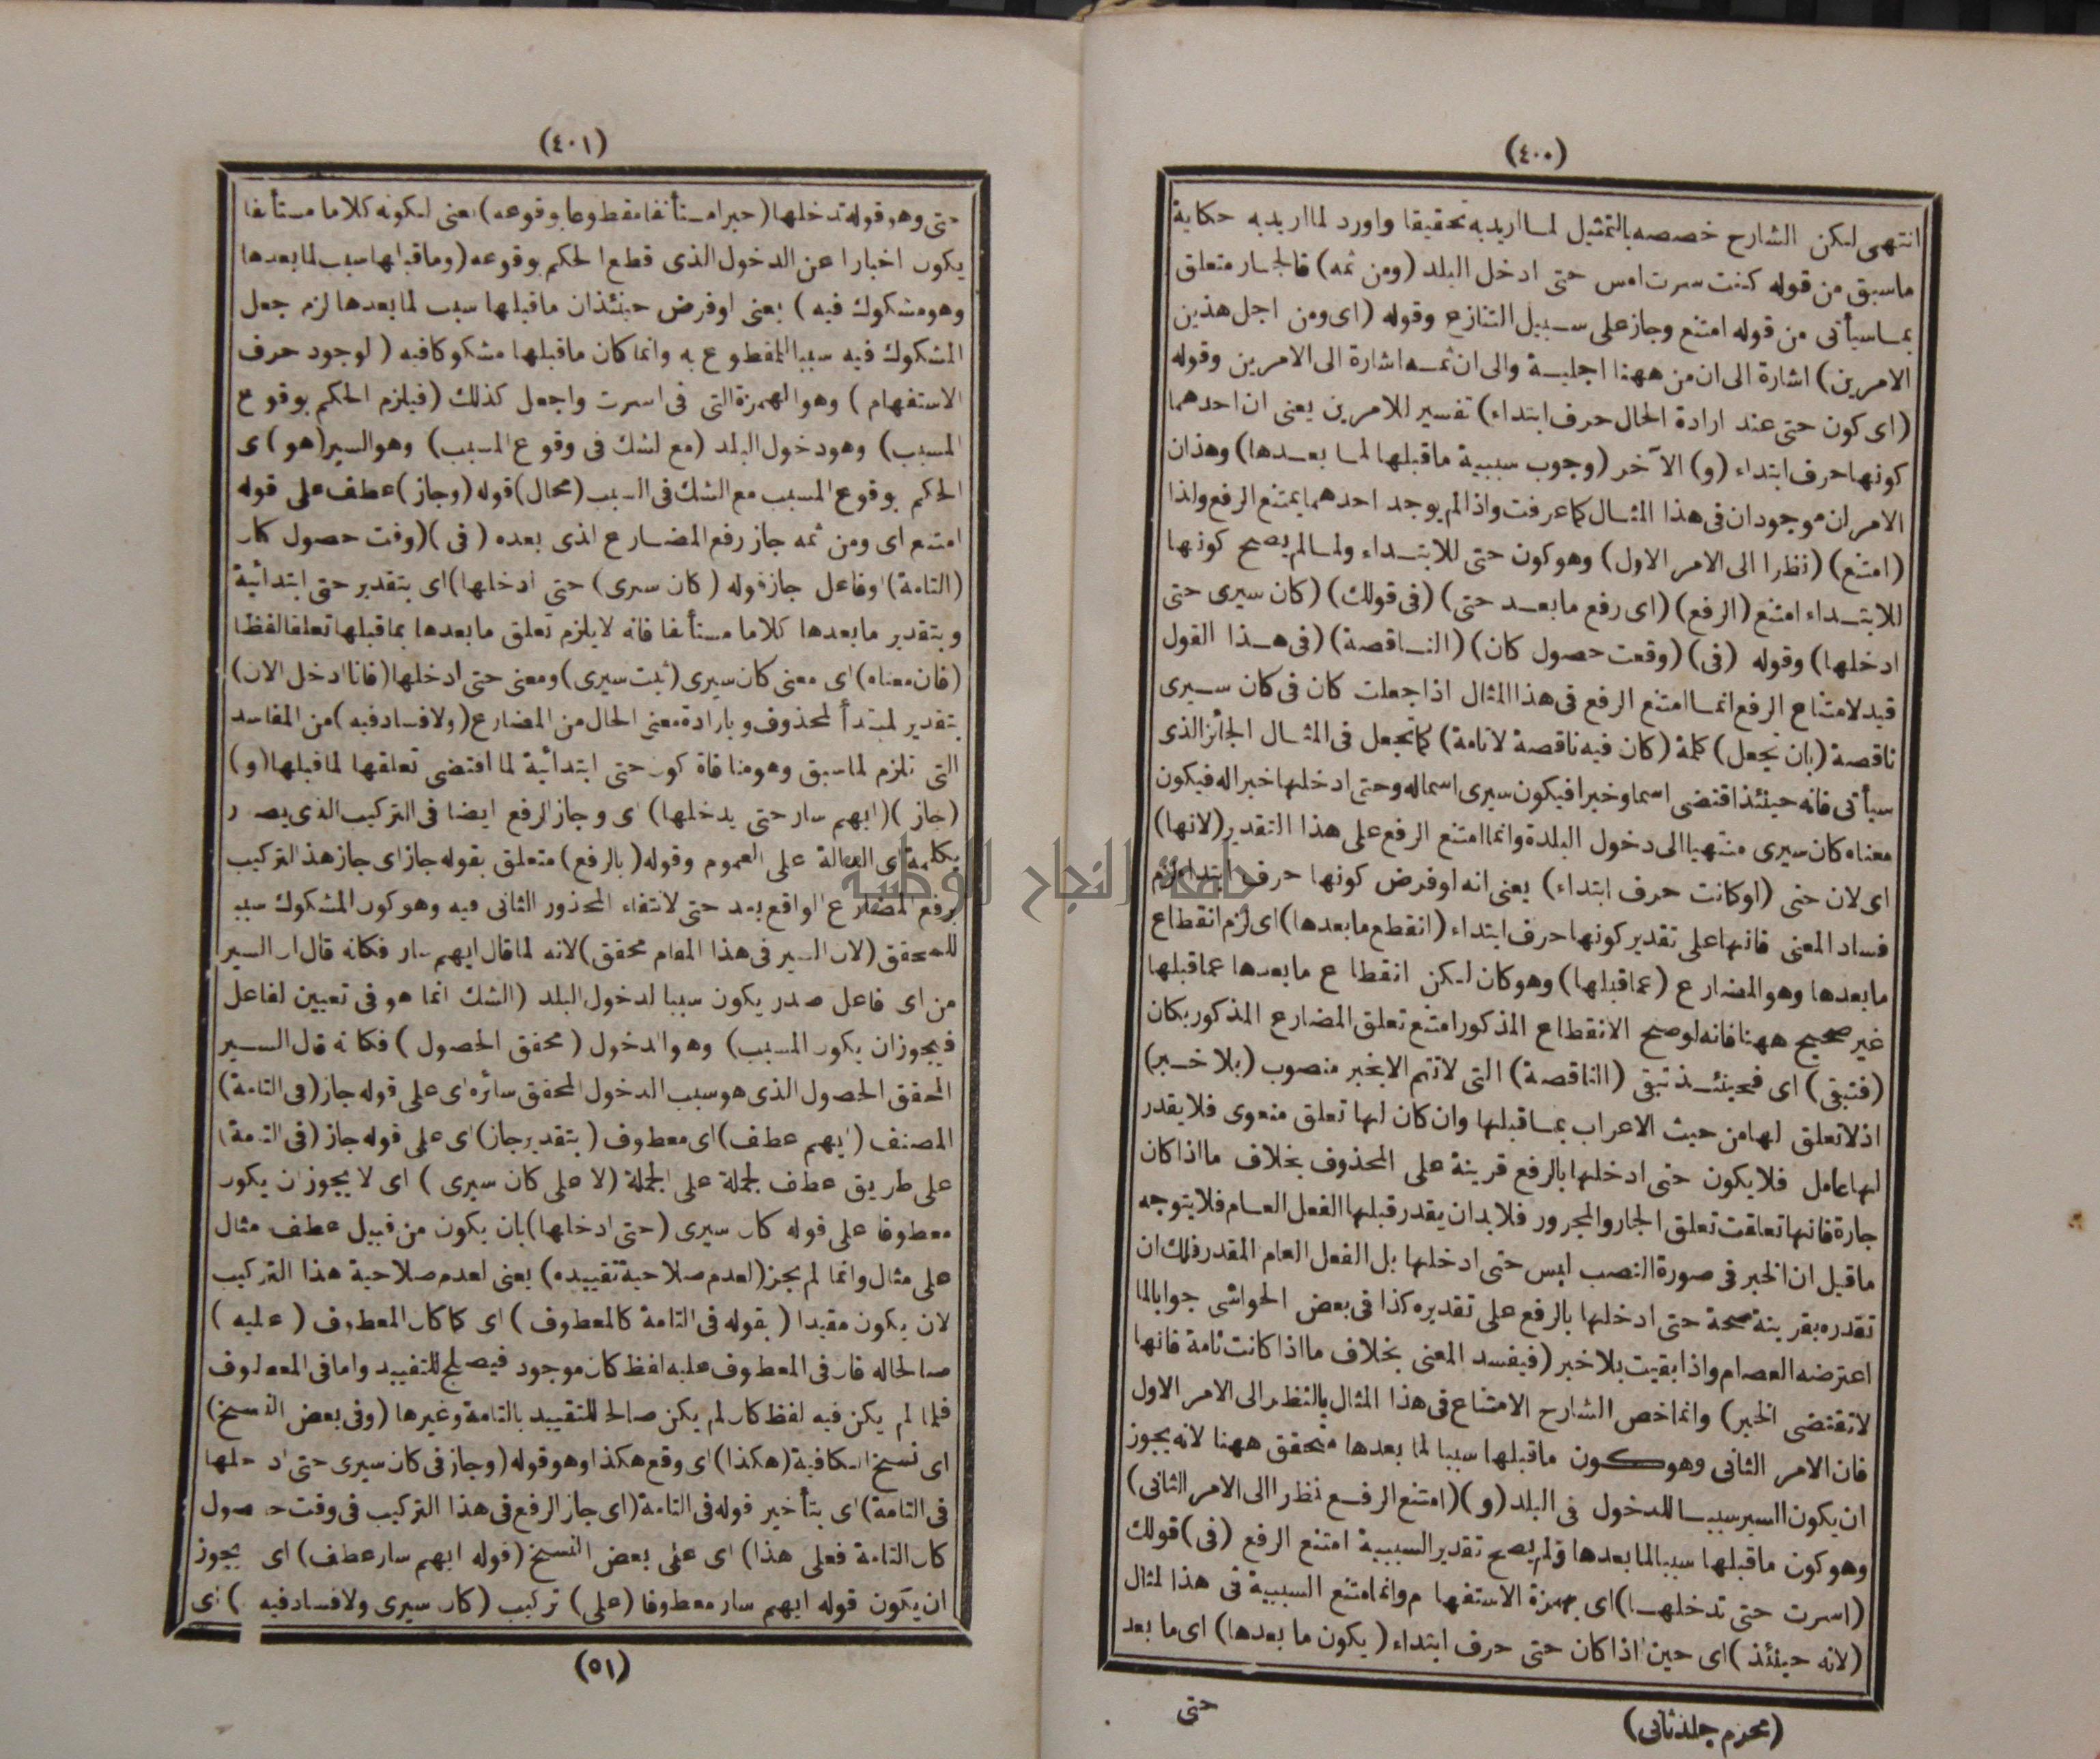 (٤٠٠)
انتهى لكن الشارح خصصه بالتمثيل لما اريد به تحقيقا واورد لما اريد به حكاية
ما سبق من قوله كنت سرت امس حتى ادخل البلد (ومن ثمه) فالجار متعلق
بما سيأتى من قوله امتنع وجاز على سبيل التنازع وقوله (اى ومن اجل هذين
الامرين) اشارة الى ان من ههنا اجلية والى ان ثمه اشارة الى الامرين وقوله
(اى كون حتى عند ارادة الحال حرف ابتداء) تفسير للامرين يعنى ان احدهما
كونها حرف ابتداء (و) الآخر (وجوب سببية ما قبلها لما بعدها) وهذان
الامران موجودان فى هذا المثال كما عرفت واذا لم يوجد احدهما يمتنع الرفع ولذا
(امتنع) (نظرا الى الامر الاول) وهو كون حتى للابتداء ولما لم يصح كونها
للابتداء امتنع (الرفع) (اى رفع ما بعد حتى) (فى قولك) (كان سيرى حتى
ادخلها) وقوله (فى) (وقعت حصول كان) (الناقصة) (فى هذا القول
قيد لامتناع الرفع انما امتنع الرفع فى هذا المثال اذا جعلت كان فى كان سيرى
ناقصة (بان يجعل) كلمة (كان فيه ناقصة لا تامة) كما تجعل فى المثال الجائز الذى
سيأتى فانه حينئذ اقتضى اسما وخبرا فيكون سيرى اسما له وحتى ادخلها خبرا له فيكون
معناه كان سيرى منتهيا الى دخول البلدة وانما امتنع الرفع على هذا التقدير (لانها)
اى لان حتى (لو كانت حرف ابتداء) يعنى انه لو فرض كونها حرف ابتداء لزم
فساد المعنى فانها على تقدير كونها حرف ابتداء (انقطع ما بعدها) اى لزم انقطاع
ما بعدها وهو المضارع (عما قبلها) وهو كان لكن انقطاع ما بعدها عما قبلها
غير صحيح ههنا فانه لو صح الانقطاع المذكور امتنع تعلق المضارع المذكور بكان
(فتبقى) اى فحينئذ تبقى (الناقصة) التى لا تتم الا بخبر منصوب (بلا خبر)
اذ لا تعلق لها من حيث الاعراب بما قبلها وان كان لها تعلق معنوى فلا يقدر
لها عامل فلا يكون حتى ادخلها بالرفع قرينة على المحذوف بخلاف ما اذا كان
جارة فانها تعلقت تعلق الجار والمجرور فلا بد ان يقدر قبلها الفعل العام فلا يتوجه
ما قيل ان الخبر فى صورة النصب ليس حتى ادخلها بل الفعل العام المقدر فلك ان
تقدره بقرينة صحة حتى ادخلها بالرفع على تقديره كذا فى بعض الحواشى جوابا لما
اعترضه العصام واذا بقيت بلا خبر (فيفسد المعنى بخلاف ما اذا كانت تامة فانها
لا تقتضى الخبر) وانما خص الشارح الامتناع فى هذا المثال بالنظر الى الامر الاول
فان الامر الثانى وهو كون ما قبلها سببا لما بعدها متحقق ههنا لانه يجوز
ان يكون السير سببا للدخول فى البلد (و) (امتنع الرفع نظرا الى الامر الثانى)
وهو كون ما قبلها سببا لما بعدها ولم يصح تقدير السببية امتنع الرفع (فى) قولك
(اسرت حتى تدخلها) اى بهمزة الاستفهام وانما امتنع السببية فى هذا المثال
(لانه حينئذ) اى حين اذا كان حتى حرف ابتداء (يكون ما بعدها) اى ما بعد
حتى
(محرم جلد ثانى)
(٤٠١)
حتى وهو قوله تدخلها (خبرا مستأنفا مقطوعا بوقوعه) يعنى لكونه كلاما مستأنفا
يكون اخبارا عن الدخول الذى قطع الحكم بوقوعه (وما قبلها سبب لما بعدها
وهو مشكوك فيه) يعنى لو فرض حينئذ ان ما قبلها سبب لما بعدها لزم جعل
المشكوك فيه سببا للمقطوع به وانما كان ما قبلها مشكوكا فيه (لوجود حرف
الاستفهام) وهو الهمزة التى فى اسرت واجعل كذلك (فيلزم الحكم بوقوع
المسبب) وهو دخول البلد (مع الشك فى وقوع السبب) وهو السير (هو) ى
الحكم بوقوع المسبب مع الشك فى السبب (محال) قوله (وجاز) عطف على قوله
امتنع اى ومن ثمه جاز رفع المضارع الذى بعده (فى) (وقت حصول كان
(التامة) وفاعل جاز قوله (كان سيرى) حتى ادخلها) اى بتقدير حتى ابتدائية
وبتقدير ما بعدها كلاما مستأنفا فانه لا يلزم تعلق ما بعدها بما قبلها تعلقا لفظا
(فان معناه) اى معنى كان سيرى (ثبت سيرى) ومعنى حتى ادخلها (فانا ادخل الان)
بتقدير لمبتدأ لمحذوف وبارادة معنى الحال من المضارع (ولا فساد فيه) من المفاسد
التى تلزم لما سبق وهو منافاة كون حتى ابتدائية لما اقتضى تعلقها لما قبلها (و)
(جاز) (ايهم سار حتى يدخلها) اى وجاز الرفع ايضا فى التركيب الذى يصدر
بكلمة اى الدالة على العموم وقوله (بالرفع) متعلق بقوله جاز اى جاز هذ التركيب
برفع المضارع الواقع بعد حتى لانتفاء المحذور الثانى فيه وهو كون المشكوك سببا
للمحقق (لان السير فى هذا المقام محقق) لانه لما قال ايهم سار فكانه قال ان السير
من اى فاعل صدر يكون سببا لدخول البلد (الشك انما هو فى تعيين لفاعل
فيجوز ان يكون المسبب) وهو الدخول (محقق الحصول) فكانه قال السير
المحقق الحصول الذى هو سبب الدخول المحقق سائره اى على قوله جاز (فى التامة)
المصنف (ايهم عطف) اى معطوف (بتقدير جاز) اى على قوله جاز (فى التامة)
على طريق عطف لجملة على الجملة (لا على كان سيرى) اى لا يجوز ن يكون
معطوفا على قوله كان سيرى (حتى ادخلها) بان يكون من قبيل عطف مثال
على مثال وانما لم يجز (لعدم صلاحية تقييده) يعنى لعدم صلاحية هذا التركيب
لان يكون مقيدا (بقوله فى التامة كالمعطوف) اى كما كان المعطوف (عليه)
صالحا له فان فى المعطوف عليه لفظ كان موجود فيصلح للتقييد واما فى المعطوف
فلما لم يكن فيه لفظ كان لم يكن صالحا للتقييد بالتامة وغيرها (وفى بعض النسخ)
اى نسخ الكافية (هكذا) اى وقع هكذا وهو قوله (وجاز فى كان سيرى حتى ادخلها
فى التامة) اى بتأخير قوله فى التامة (اى جاز الرفع فى هذا التركيب فى وقت حصول
كان التامة فعلى هذا) اى على بعض النسخ (قوله ايهم سار عطف) اى يجوز
ان يكون قوله ايهم سار معطوفا (على) تركيب (كان سيرى ولا فساد فيه) اى
(٥١)
جامعة النجاح الوطنية